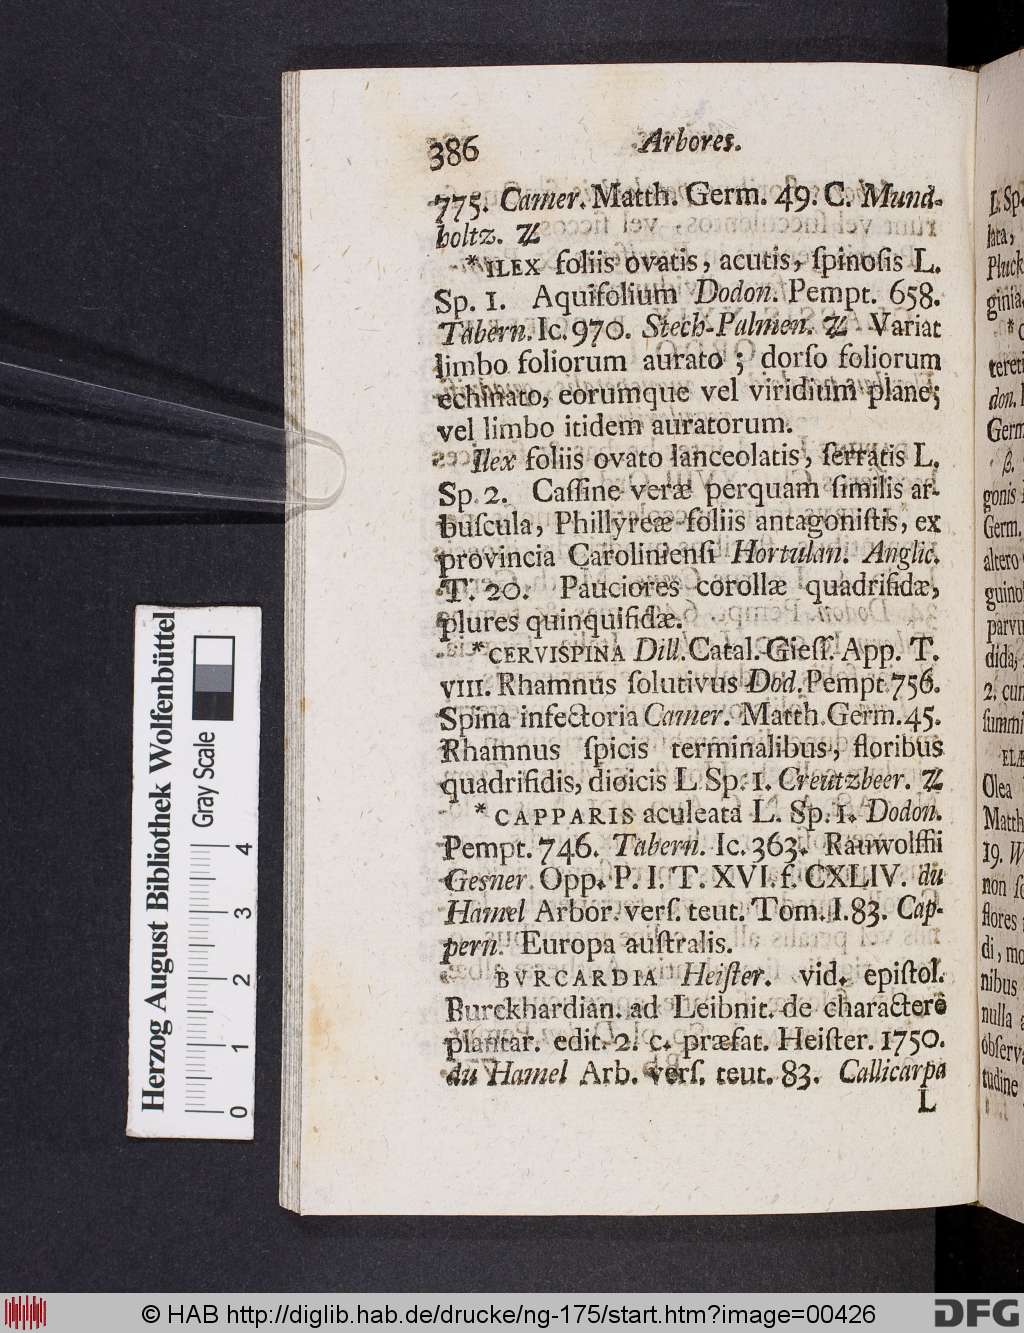 386 Arbores.
775. Camer. Matth. Germ. 49. C. Mund-
holtz. ♃
* ILEX foliis ovatis, acutis, ſpinoſis L.
Sp. 1. Aquifolium Dodon. Pempt. 658.
Tabern. Ic. 970. Stech-Palmen. ♃ Variat
limbo foliorum aurato; dorſo foliorum
echinato, eorumque vel viridium plane;
vel limbo itidem auratorum.
Ilex foliis ovato lanceolatis, ſerratis L.
Sp. 2. Caſſine veræ perquam ſimilis ar-
buſcula, Phillyreæ foliis antagoniſtis, ex
provincia Carolinienſi Hortulan. Anglic.
T. 20. Pauciores corollæ quadrifidæ,
plures quinquifidæ.
* CERVISPINA Dill. Catal. Gieſſ. App. T.
VIII. Rhamnus ſolutivus Dod. Pempt. 756.
Spina infectoria Camer. Matth. Germ. 45.
Rhamnus ſpicis terminalibus, floribus
quadrifidis, dioicis L. Sp. 1. Creutzbeer. ♃
* CAPPARIS aculeata L. Sp. 1. Dodon.
Pempt. 746. Tabern. Ic. 363. Rauwolffii
Gesner Opp. P. I. T. XVI. f. CXLIV. du
Hamel Arbor. verſ. teut. Tom. I. 83. Cap-
pern. Europa auſtralis.
BVRCARDIA Heiſter. vid. epiſtol.
Burckhardian. ad Leibnit. de charactere
plantar. edit. 2. c. præfat. Heiſter. 1750.
du Hamel Arb. verſ. teut. 83. Callicarpa
L
L. Sp.
lata,
Pluck
ginia
tereti
don.
Germ
β.
gonis
Germ.
altero
guino
parvu
dida,
2. cum
ſummi
ELÆ
Olea
Matth
19. W
non ſo
flores
di, mo
nibus
nulla
obſerv
tudine
Herzog August Bibliothek Wolfenbüttel
Gray Scale
0 1 2 3 4
© HAB http://diglib.hab.de/drucke/ng-175/start.htm?image=00426
DFG